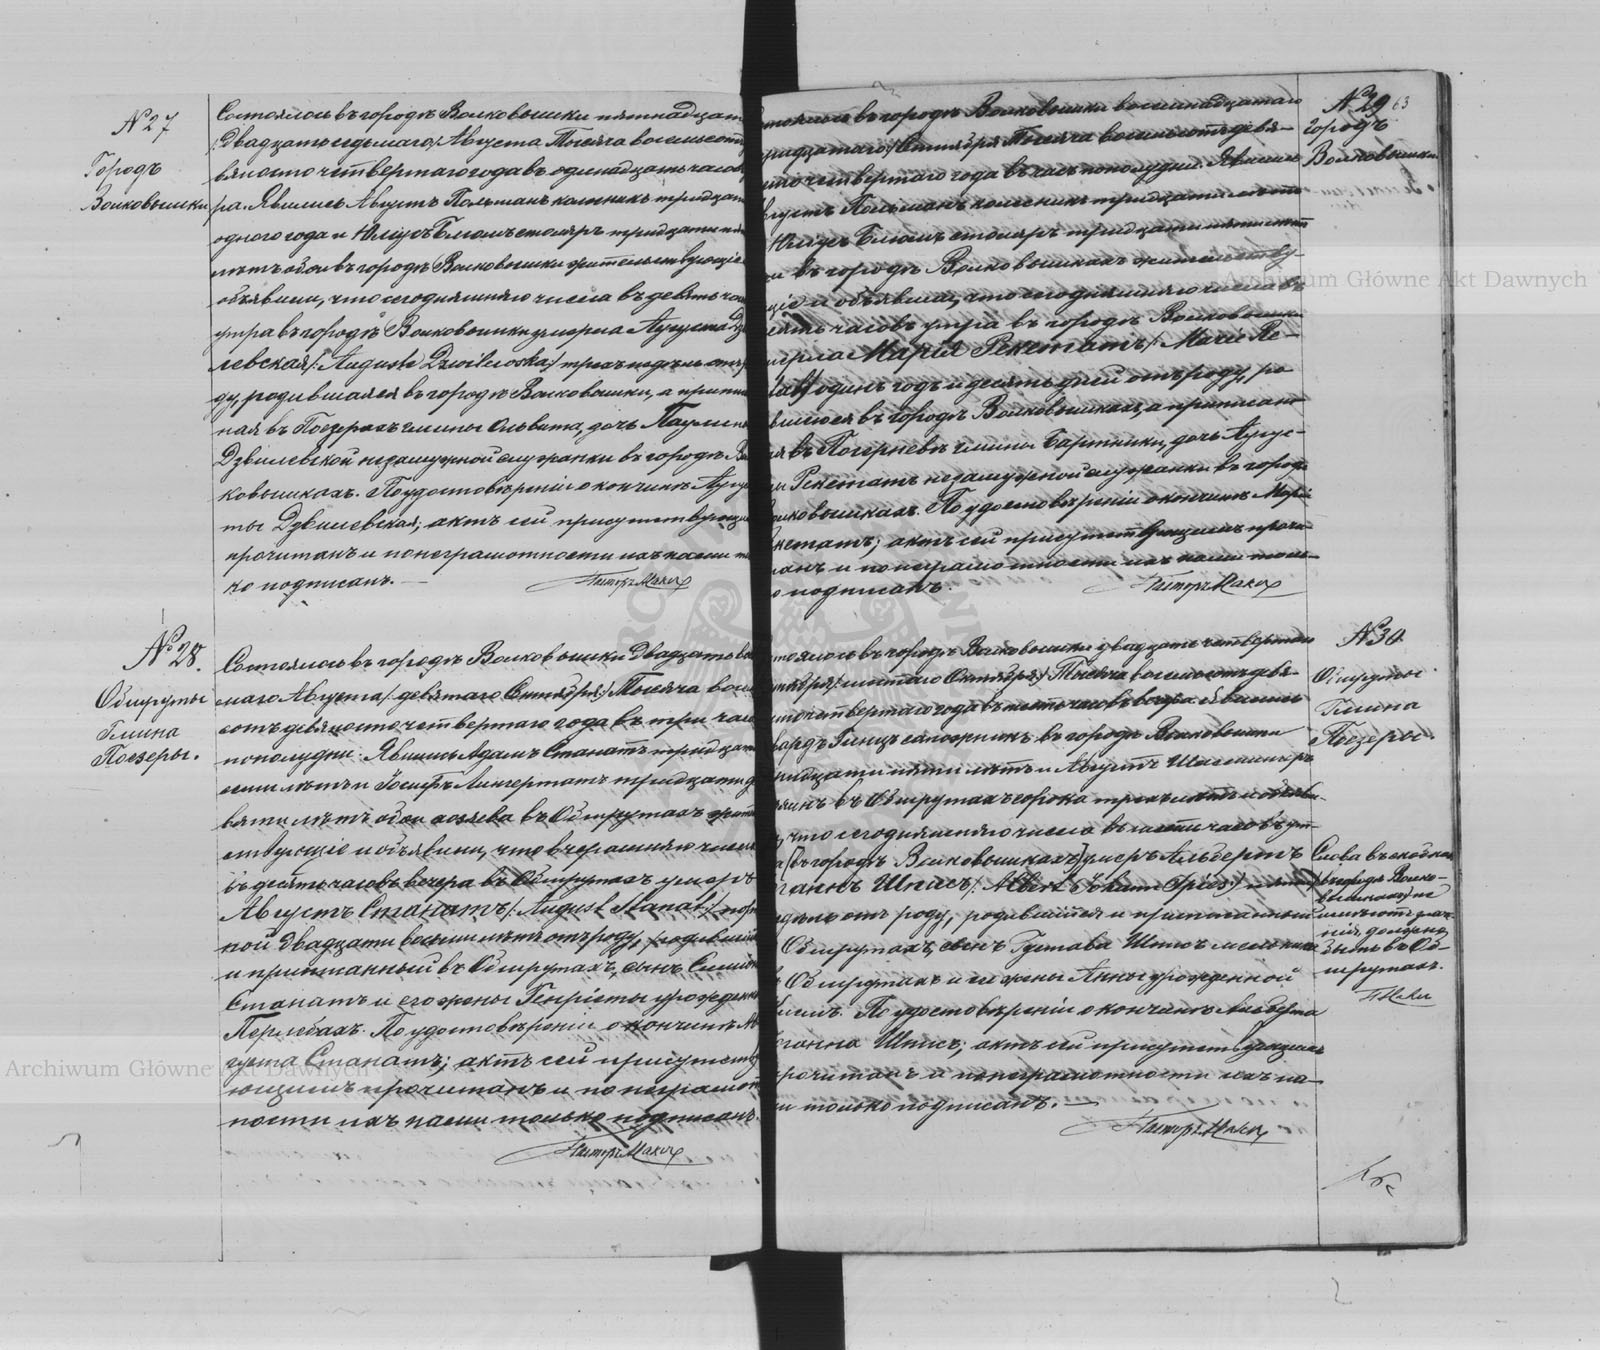 № 27
Городъ
Волковышки
Состоялось въ городѣ Волковышки пятнадцат
/Двадцать седьмаго/ Августа Тысяча восемьсотъ
вяносто четвертаго года въ одинадцать часовъ
ра. Явились Августъ Польманъ колесникъ тридцати
одного года и Юліусъ Блюмъ столяръ тридцати пя
лѣтъ обои въ городѣ Волковышки жительствующіе
объявили, что сегодняшняго числа въ девять час
утра въ городѣ Волковышки умерла Августа Дз
левская /: Auguste Dzwilewska:/ трехъ недѣль отъ
ду, родившаяся въ городѣ Волковышки, а припи
ная въ Поезерахъ гмины Ольвита, дочь Паулин
Дзвилевской незамужной служанки въ городѣ Во
ковышкахъ. По удостовѣреніи о кончинѣ Авгус
ты Дзвилевская; актъ сей присутствующи
прочитанъ и по неграмотности ихъ нами то
ко подписанъ. —
Пасторъ Махол
№ 28.
Обшруты
Гмина
Поезеры.
Состоялось въ городѣ Волковышки Двадцать во
маго Августа /: девятаго Сентября:/ Тысяча вось
сотъ девяносто четвертаго года въ три часа
пополудни. Явились Адамъ Станатъ тридцати
семи лѣтъ и Іосифъ Лингертатъ тридцати д
вяти лѣтъ обои хозяева въ Обшрутахъ жит
ствующіе и объявили, что вчерашняго числа
въ десять часовъ вечера въ Обшрутахъ умеръ
Августъ Станатъ /: August Stanat:/
ной двадцати восьми лѣтъ отъ роду, родившійся
и приписанный въ Обшрутахъ, сынъ Симіон
Станатъ и его жены Генріеты урожденн
Перлебахъ. По удостовѣреніи о кончинѣ Ав
густа Станатъ; актъ сей присутству
ющимъ прочитанъ и по неграмот
ности ихъ нами только подписанъ.
Пасторъ Махол
№ 29 63
Городъ
Волковышки
стоялось въ городѣ Волковышки восемнадцатаго
ридцатаго/ Сентября Тысяча восемьсотъ девя-
носто четвертаго года въ часъ пополудни. Явились
вгустъ Польманъ колесникъ тридцати лѣтъ
Юліусъ Блюмъ столяръ тридцати пяти лѣтъ
ои въ городѣ Волковышкахъ жительству-
щіе и объявили, что сегодняшняго числа въ
сять часовъ утра въ городѣ Волковышки
мерла Марія Рекетатъ /: Marie Re-
tat:/ одинъ годъ и десять дней отъ роду, ро
вшаяся въ городѣ Волковышкахъ, а приписан
ая въ гмины Бартники, дочь Авгус-
ы Рекетатъ незамужной служанки въ городѣ
олковышкахъ. По удостовѣреніи о кончинѣ Маріи
кетатъ; актъ сей присутствующимъ прочи-
танъ и по неграмотности ихъ нами толь-
о подписанъ.
Пасторъ Махол
№ 30
Обшруты
Гмина
Поезеры
стоялось въ городѣ Волковышки двадцать четвертаго
нтября /: шестаго Октября:/ Тысяча восемьсотъ девя-
носто четвертаго года въ шесть часовъ вечера явились
вардъ Гинцъ сапожникъ въ городѣ Волковышки
ридцати пяти лѣтъ и Августъ
яинъ въ Обшрутахъ сорока трехъ лѣтъ и объяви-
, что сегодняшняго числа въ шесть часовъ ут-
а [въ городѣ Волковышкахъ] умеръ Альбертъ
ганнъ Шписъ /: Albert Johann Spies:/
дѣль отъ роду, родившійся и приписанный
Обшрутахъ, сынъ Густава Шписъ мельника
ъ Обшрутахъ и его жены Анны урожденной
По удостовѣреніи о кончинѣ Альберта
оганна Шписъ; актъ сей присутствующимъ
рочитанъ и по неграмотности ихъ на-
и только подписанъ. —
Пасторъ Махол
Слова въ скобкахъ
въ городѣ Волко-
вышкахъ) не
имѣютъ зна-
ченія, должно
быть въ Об-
шрутахъ.
П. Махол
Archiwum Główne Akt Dawnych
Archiwum Główne Akt Dawnych